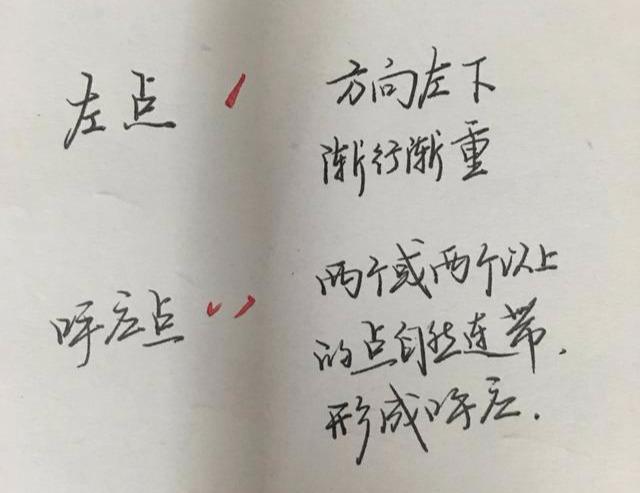 左点
方向左下
渐行渐重
呼应点
两个或两个以上
的点自然连带，
形成呼应．